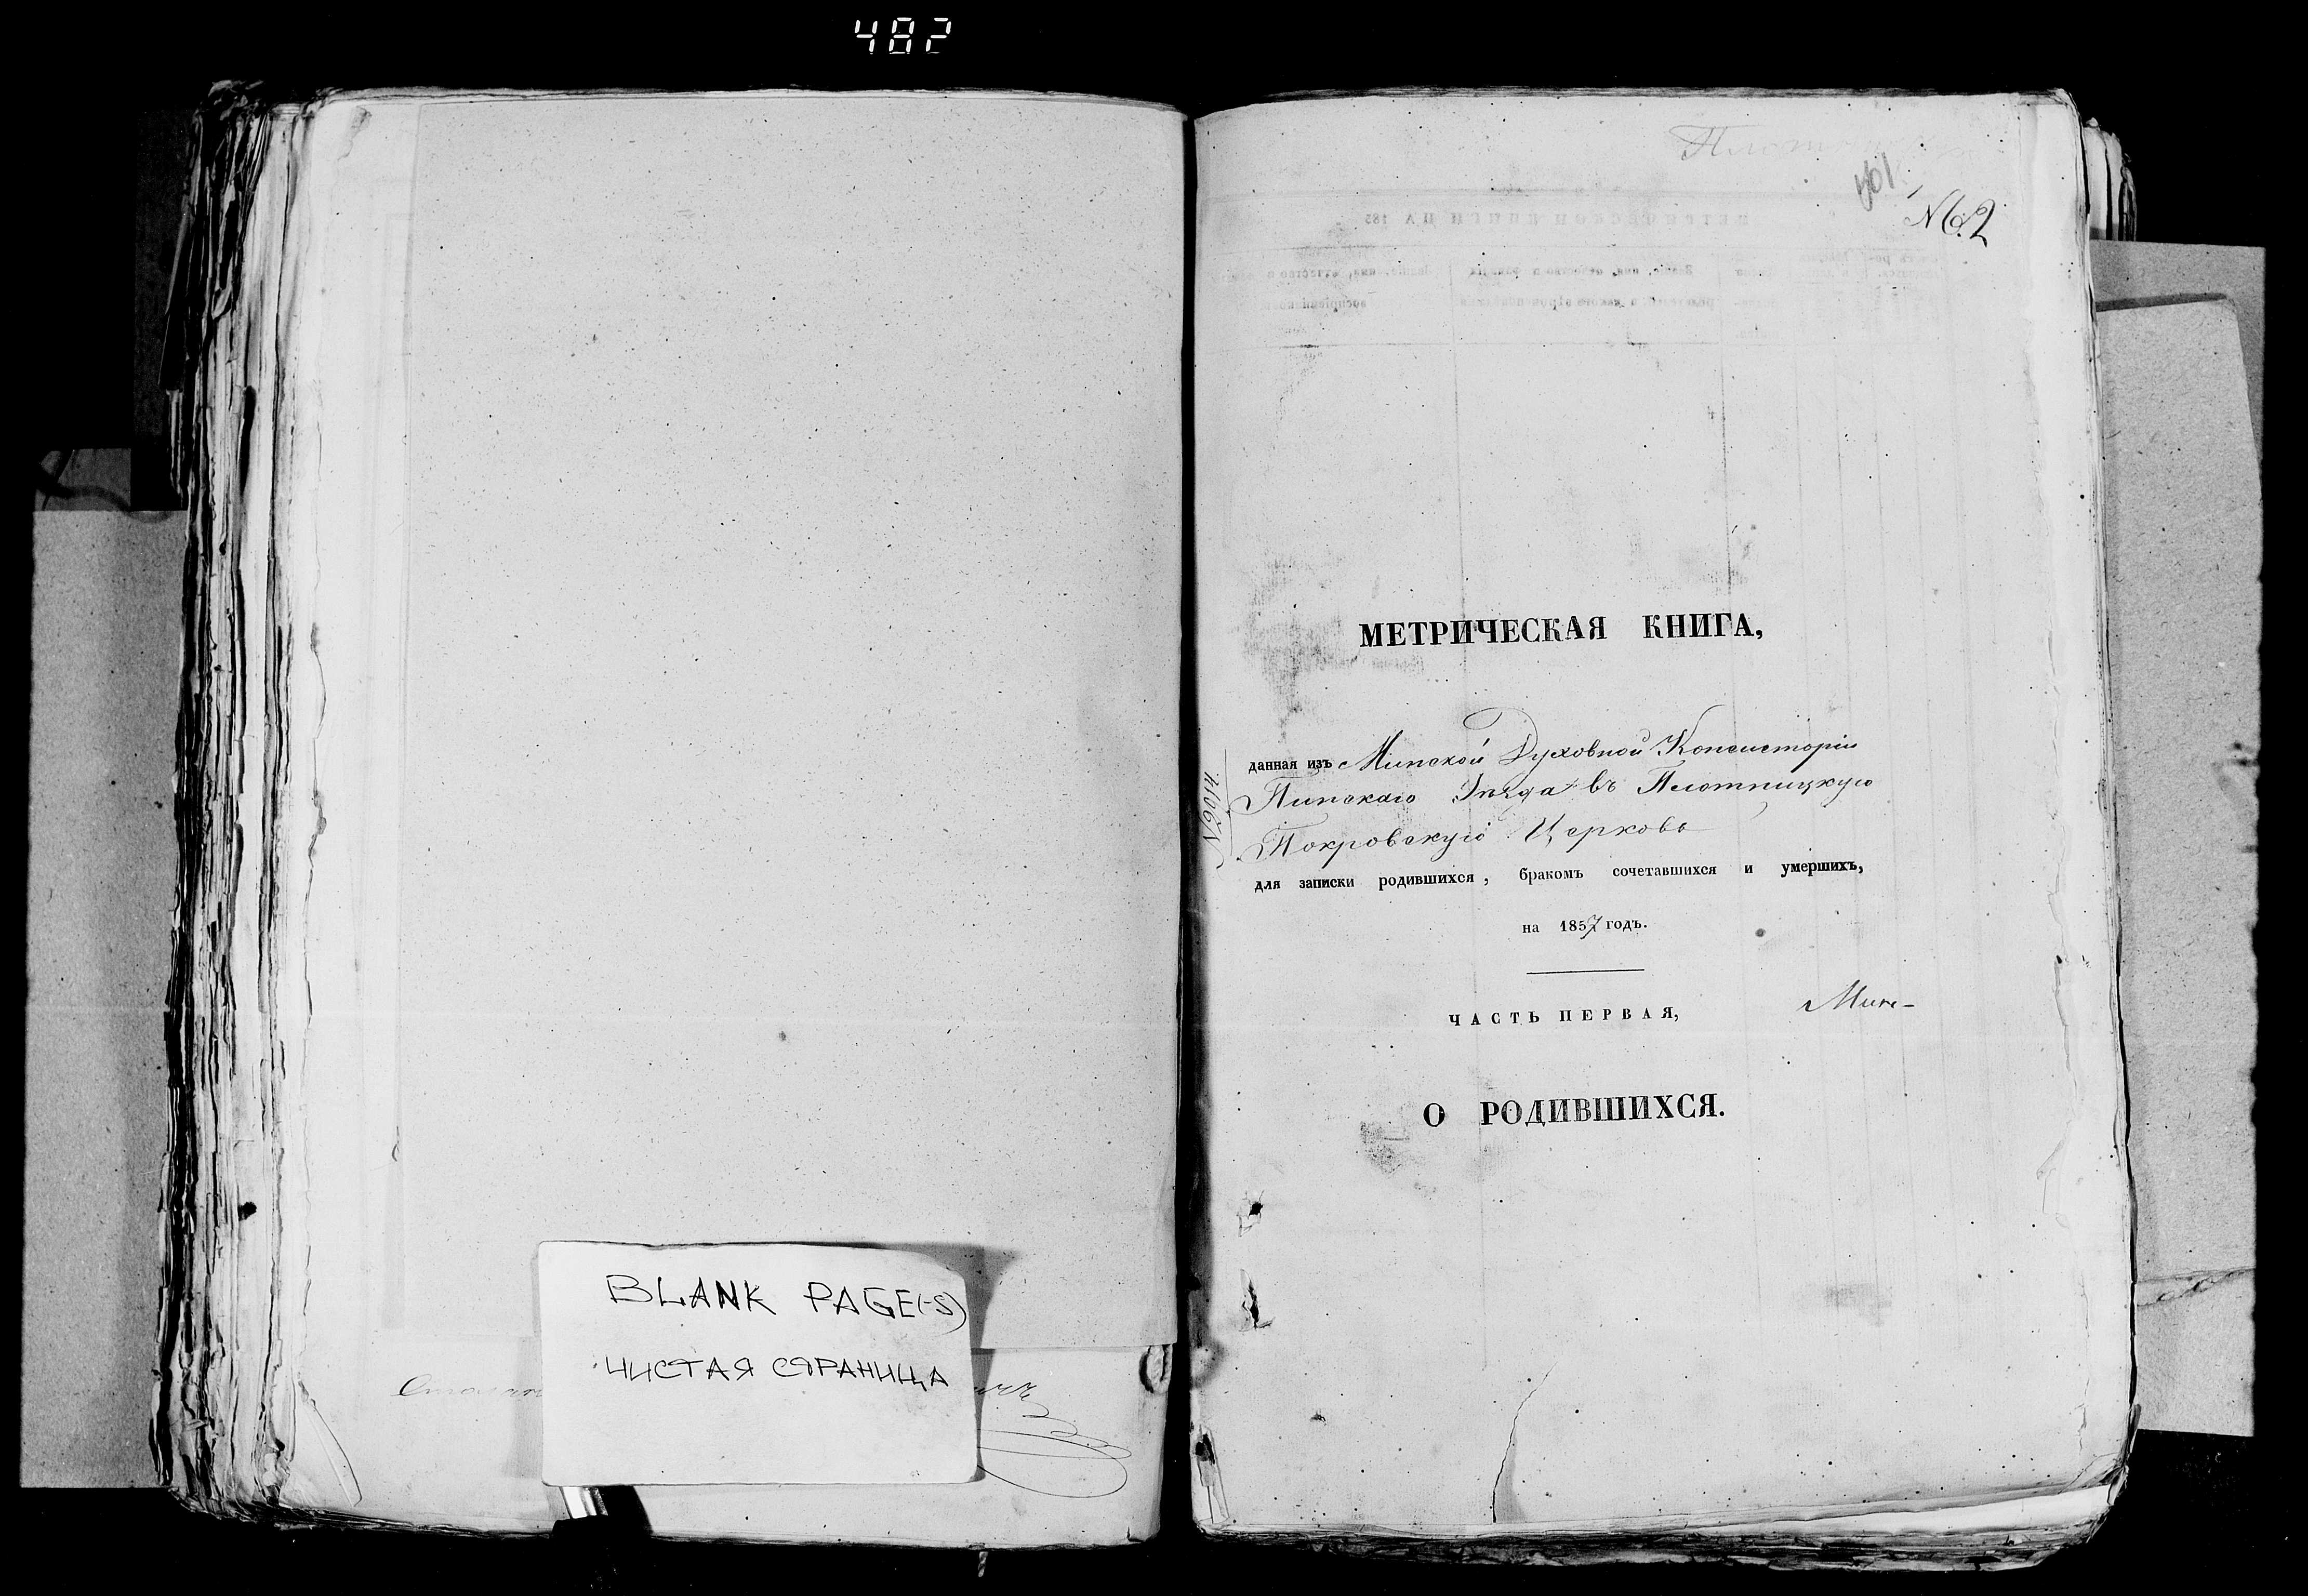 482
BLANK PAGE(-S)
ЧИСТАЯ СТРАНИЦА
401
№ 2
МЕТРИЧЕСКАЯ КНИГА,
данная изъ Минской Духовной Консисторіи
Пинскаго Уѣзда въ Плотницкую
Покровскую Церковь
для записки родившихся, бракомъ сочетавшихся и умершихъ,
на 1857 годъ.
ЧАСТЬ ПЕРВАЯ,
Мин-
О РОДИВШИХСЯ.